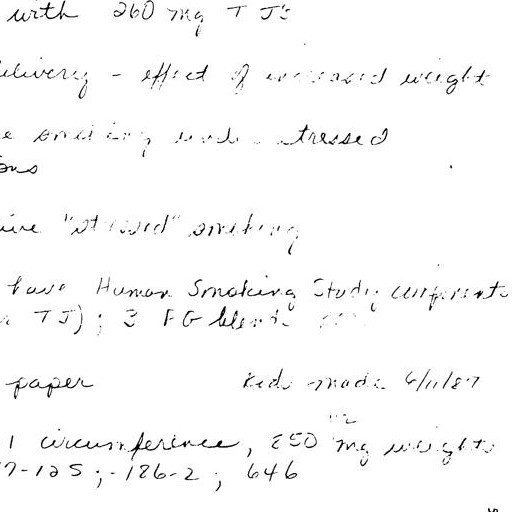 with 260 mg T J's
delivery - effect of increased weight
smoking under stressed
ive "stressed" smoking
have Human Smoking Study components
TJ) ; 3 FG blends
paper Rods made 6/11/87
1 circumference, 250 mg weights
7-125 ; -126-2 ; 646